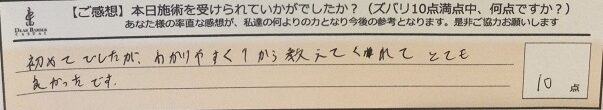 【ご感想】本日施術を受けられていかがでしたか？（ズバリ10点満点中、何点ですか？）
あなた様の率直な感想が、私達の何よりの力となり今後の参考となります。是非ご協力お願いします
初めてでしたが、わかりやすく1から教えてくれて とても
良かったです。
10 点